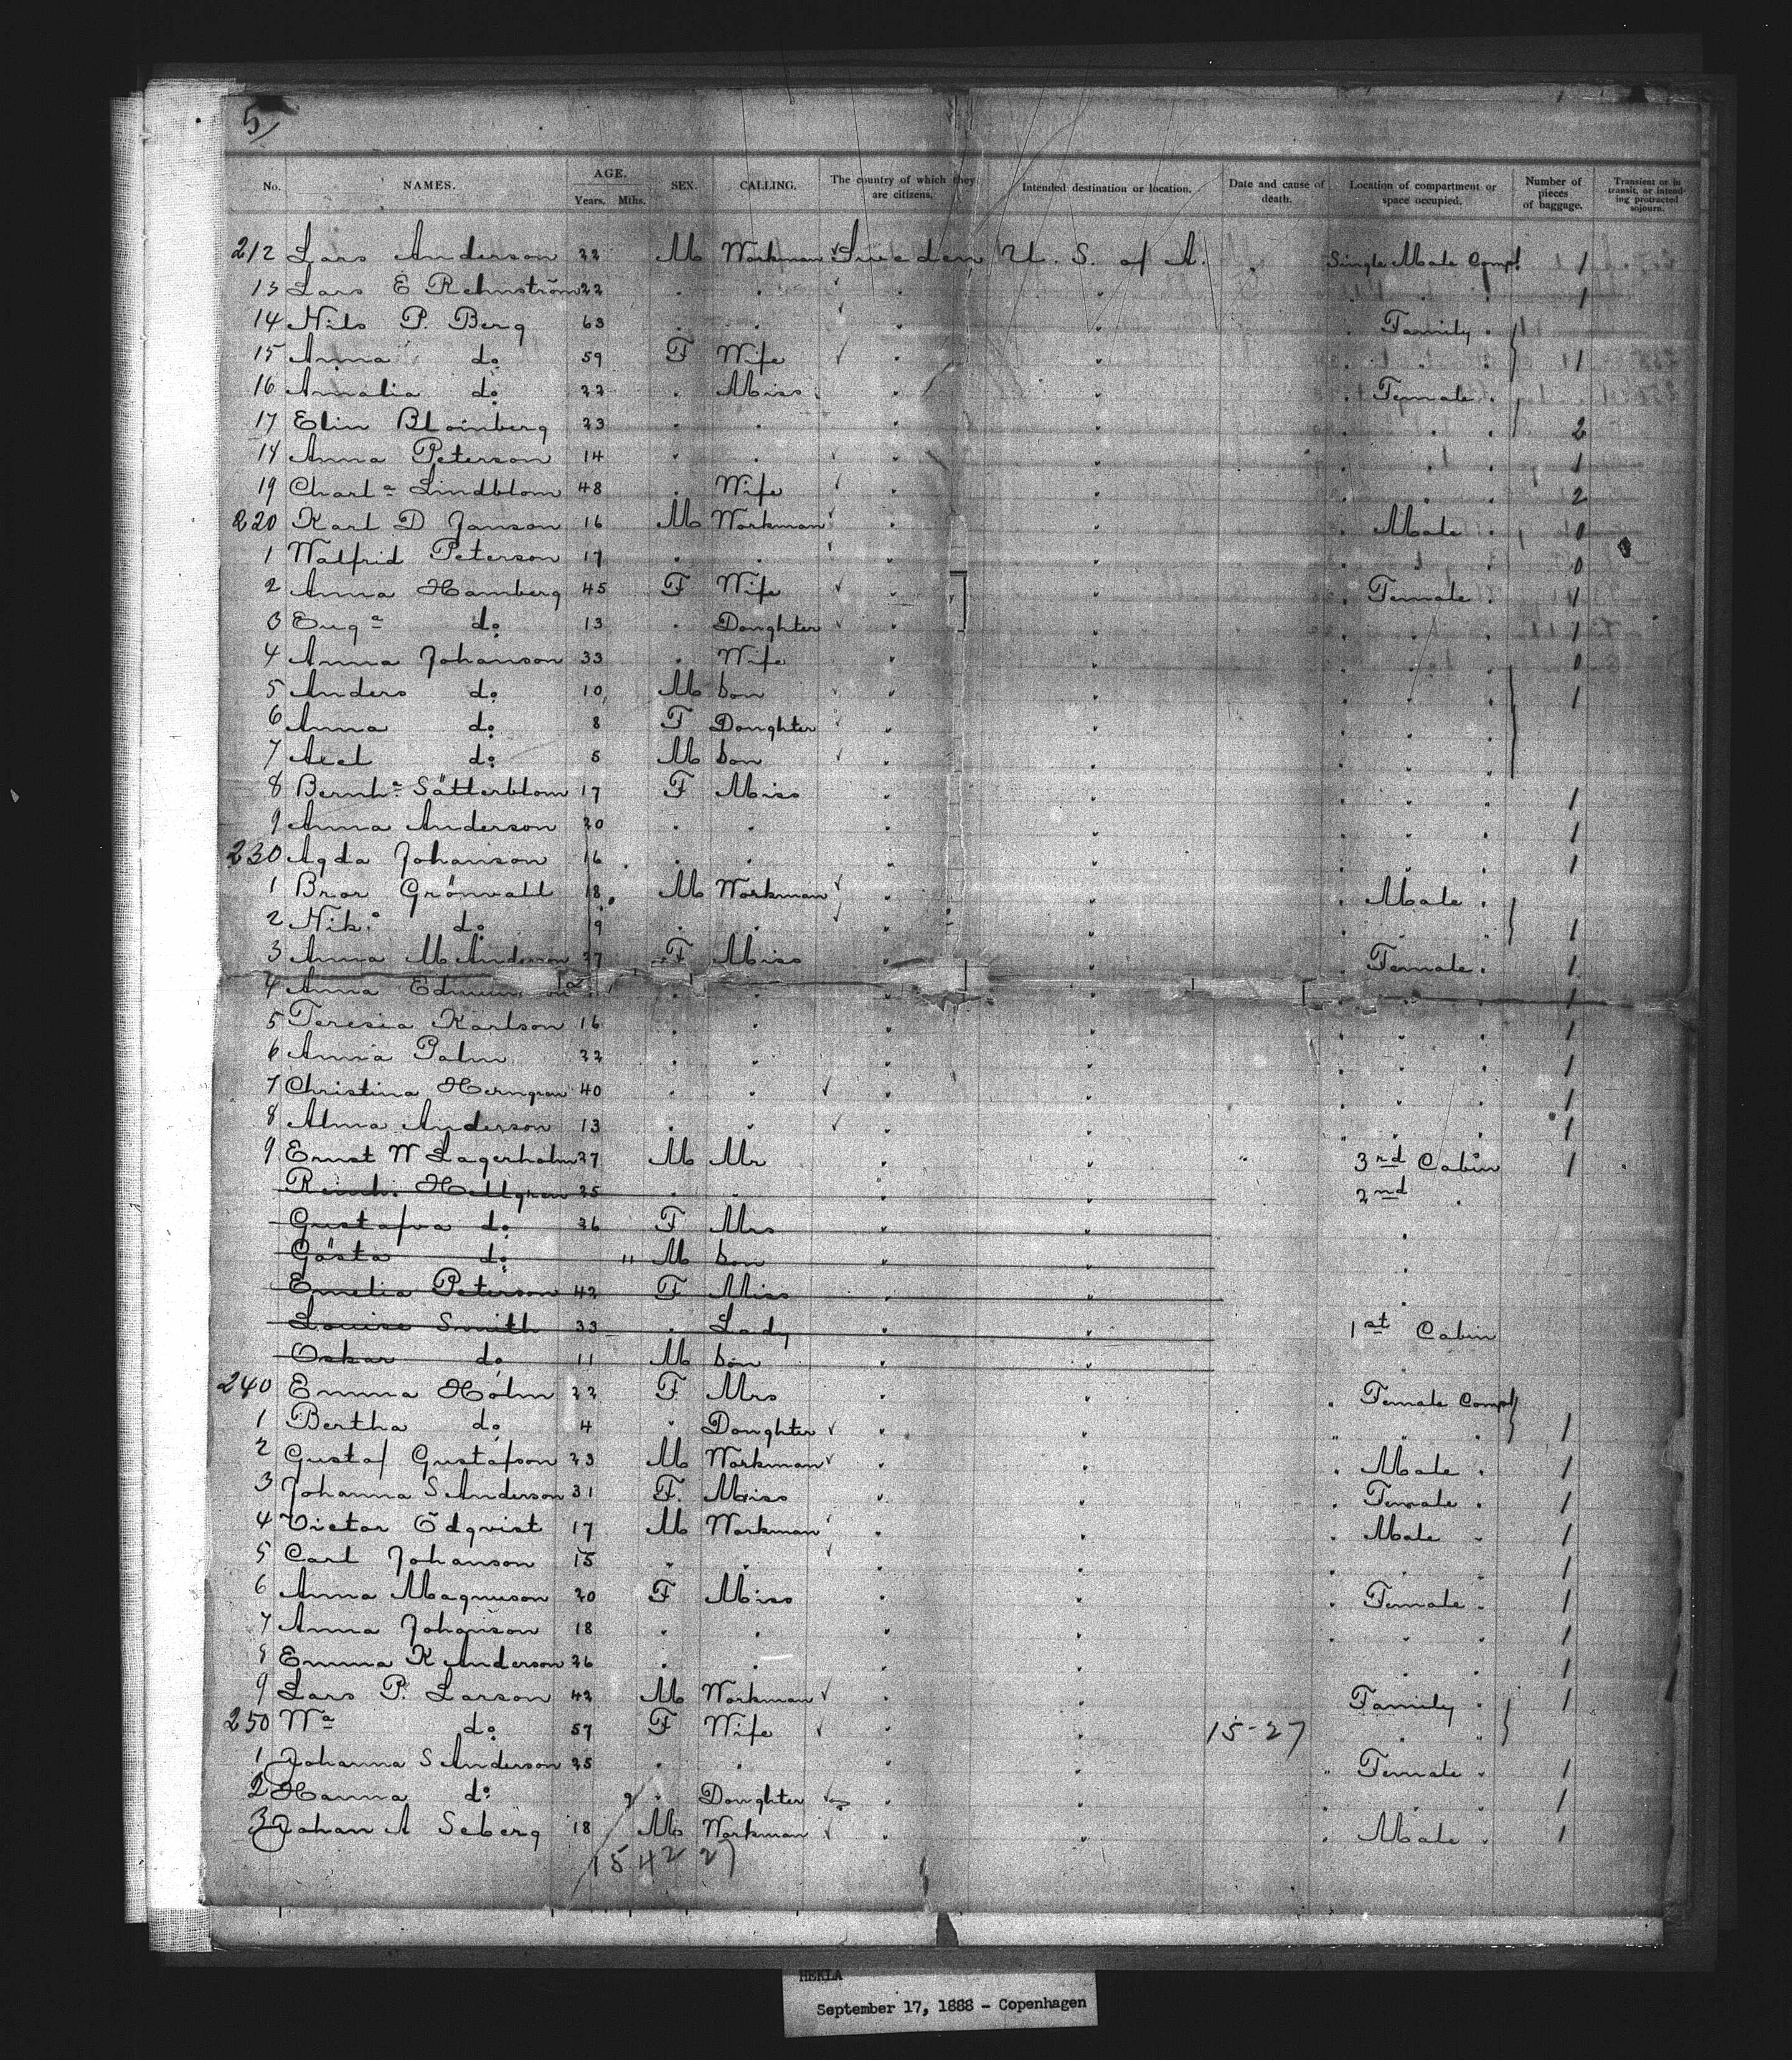 5/
No. NAMES. AGE. Years. Mths. SEX. CALLING. The country of which they are citizens. Intended destination or location. Date and cause of death. Location of compartment or space occupied. Number of pieces of baggage. Transient or in transit, or intending protracted sojourn.
212 Lars Anderson 22 M Workman Sweden U. S. of A. Single Male Compt 1
13 Lars E Rehnström 22 " " " " " " " 1
14 Nils P. Berg 63 " " " " " Family "
15 Anna do 59 F Wife " " " " " 1
16 Amalia do 22 " Miss " " " Female "
17 Elin Blomberg 23 " " " " " " " 2
14 Anna Peterson 14 " " " " " " " 1
19 Charla Lindblom 48 " Wife " " " " " 2
220 Karl D Janson 16 M Workman " " " Male " 0
1 Walfrid Peterson 17 " " " " " " " 0
2 Anna Hamberg 45 F Wife " " " Female " 1
3 Euga do 13 " Doughter " " " " " 1
4 Anna Johanson 33 " Wife " " " " " 0
5 Anders do 10 M Son " " " " " 1
6 Anna do 8 F Doughter " " " " "
7 Axel do 5 M Son " " " " "
8 Bernha Sätterblom 17 F Miss " " " " " 1
9 Anna Anderson 20 " " " " " " " 1
230 Agda Johanson 16 " " " " " " " 1
1 Bror Grönvall 18 M Workman " " " Male "
2 Nik: do 19 " " " " " " " 1
3 Anna M Anderson 27 F Miss " " " Female " 1
4 Anna " " " " " " " 1
5 Teresia Karlson 16 " " " " " " " 1
6 Anna Palm 22 " " " " " " " 1
7 Christina Herngren 40 " " " " " " " 1
8 Alma Anderson 13 " " " " " " " 1
9 Ernst W Lagerholm 27 M Mr " " " 3rd Cabin 1
Reinh: Hellgren 25 " " " " 2nd "
Gustafva do 26 F Mrs " " "
Gösta do " M Son " " "
Emelia Peterson 42 F Miss " " "
Louise Smith 33 " Lady " " 1st Cabin
Oskar do 11 M Son " " "
240 Emma Holm 22 F Mrs " " " Female Compt
1 Bertha do 4 " Doughter " " " " " 1
2 Gustaf Gustafson 23 M Workman " " " Male " 1
3 Johanna S Anderson 31 F. Miss " " " Female " 1
4 Victor Ödqvist 17 M Workman " " " Male " 1
5 Carl Johanson 15 " " " " " " " 1
6 Anna Magnuson 20 F Miss " " " Female " 1
7 Anna Johanson 18 " " " " " " " 1
8 Emma K Anderson 26 " " " " " " 1
9 Lars P. Larson 42 M Workman " " Family " 1
250 Wa do 57 F Wife " " 15-27 " "
1 Johanna S Anderson 25 " " " " " Female " 1
2 Hanna do 9 " Doughter " " " " " 1
3 Johan A Seberg 18 M Workman " " " Male " 1
1542 27
HEKLA
September 17, 1888 - Copenhagen